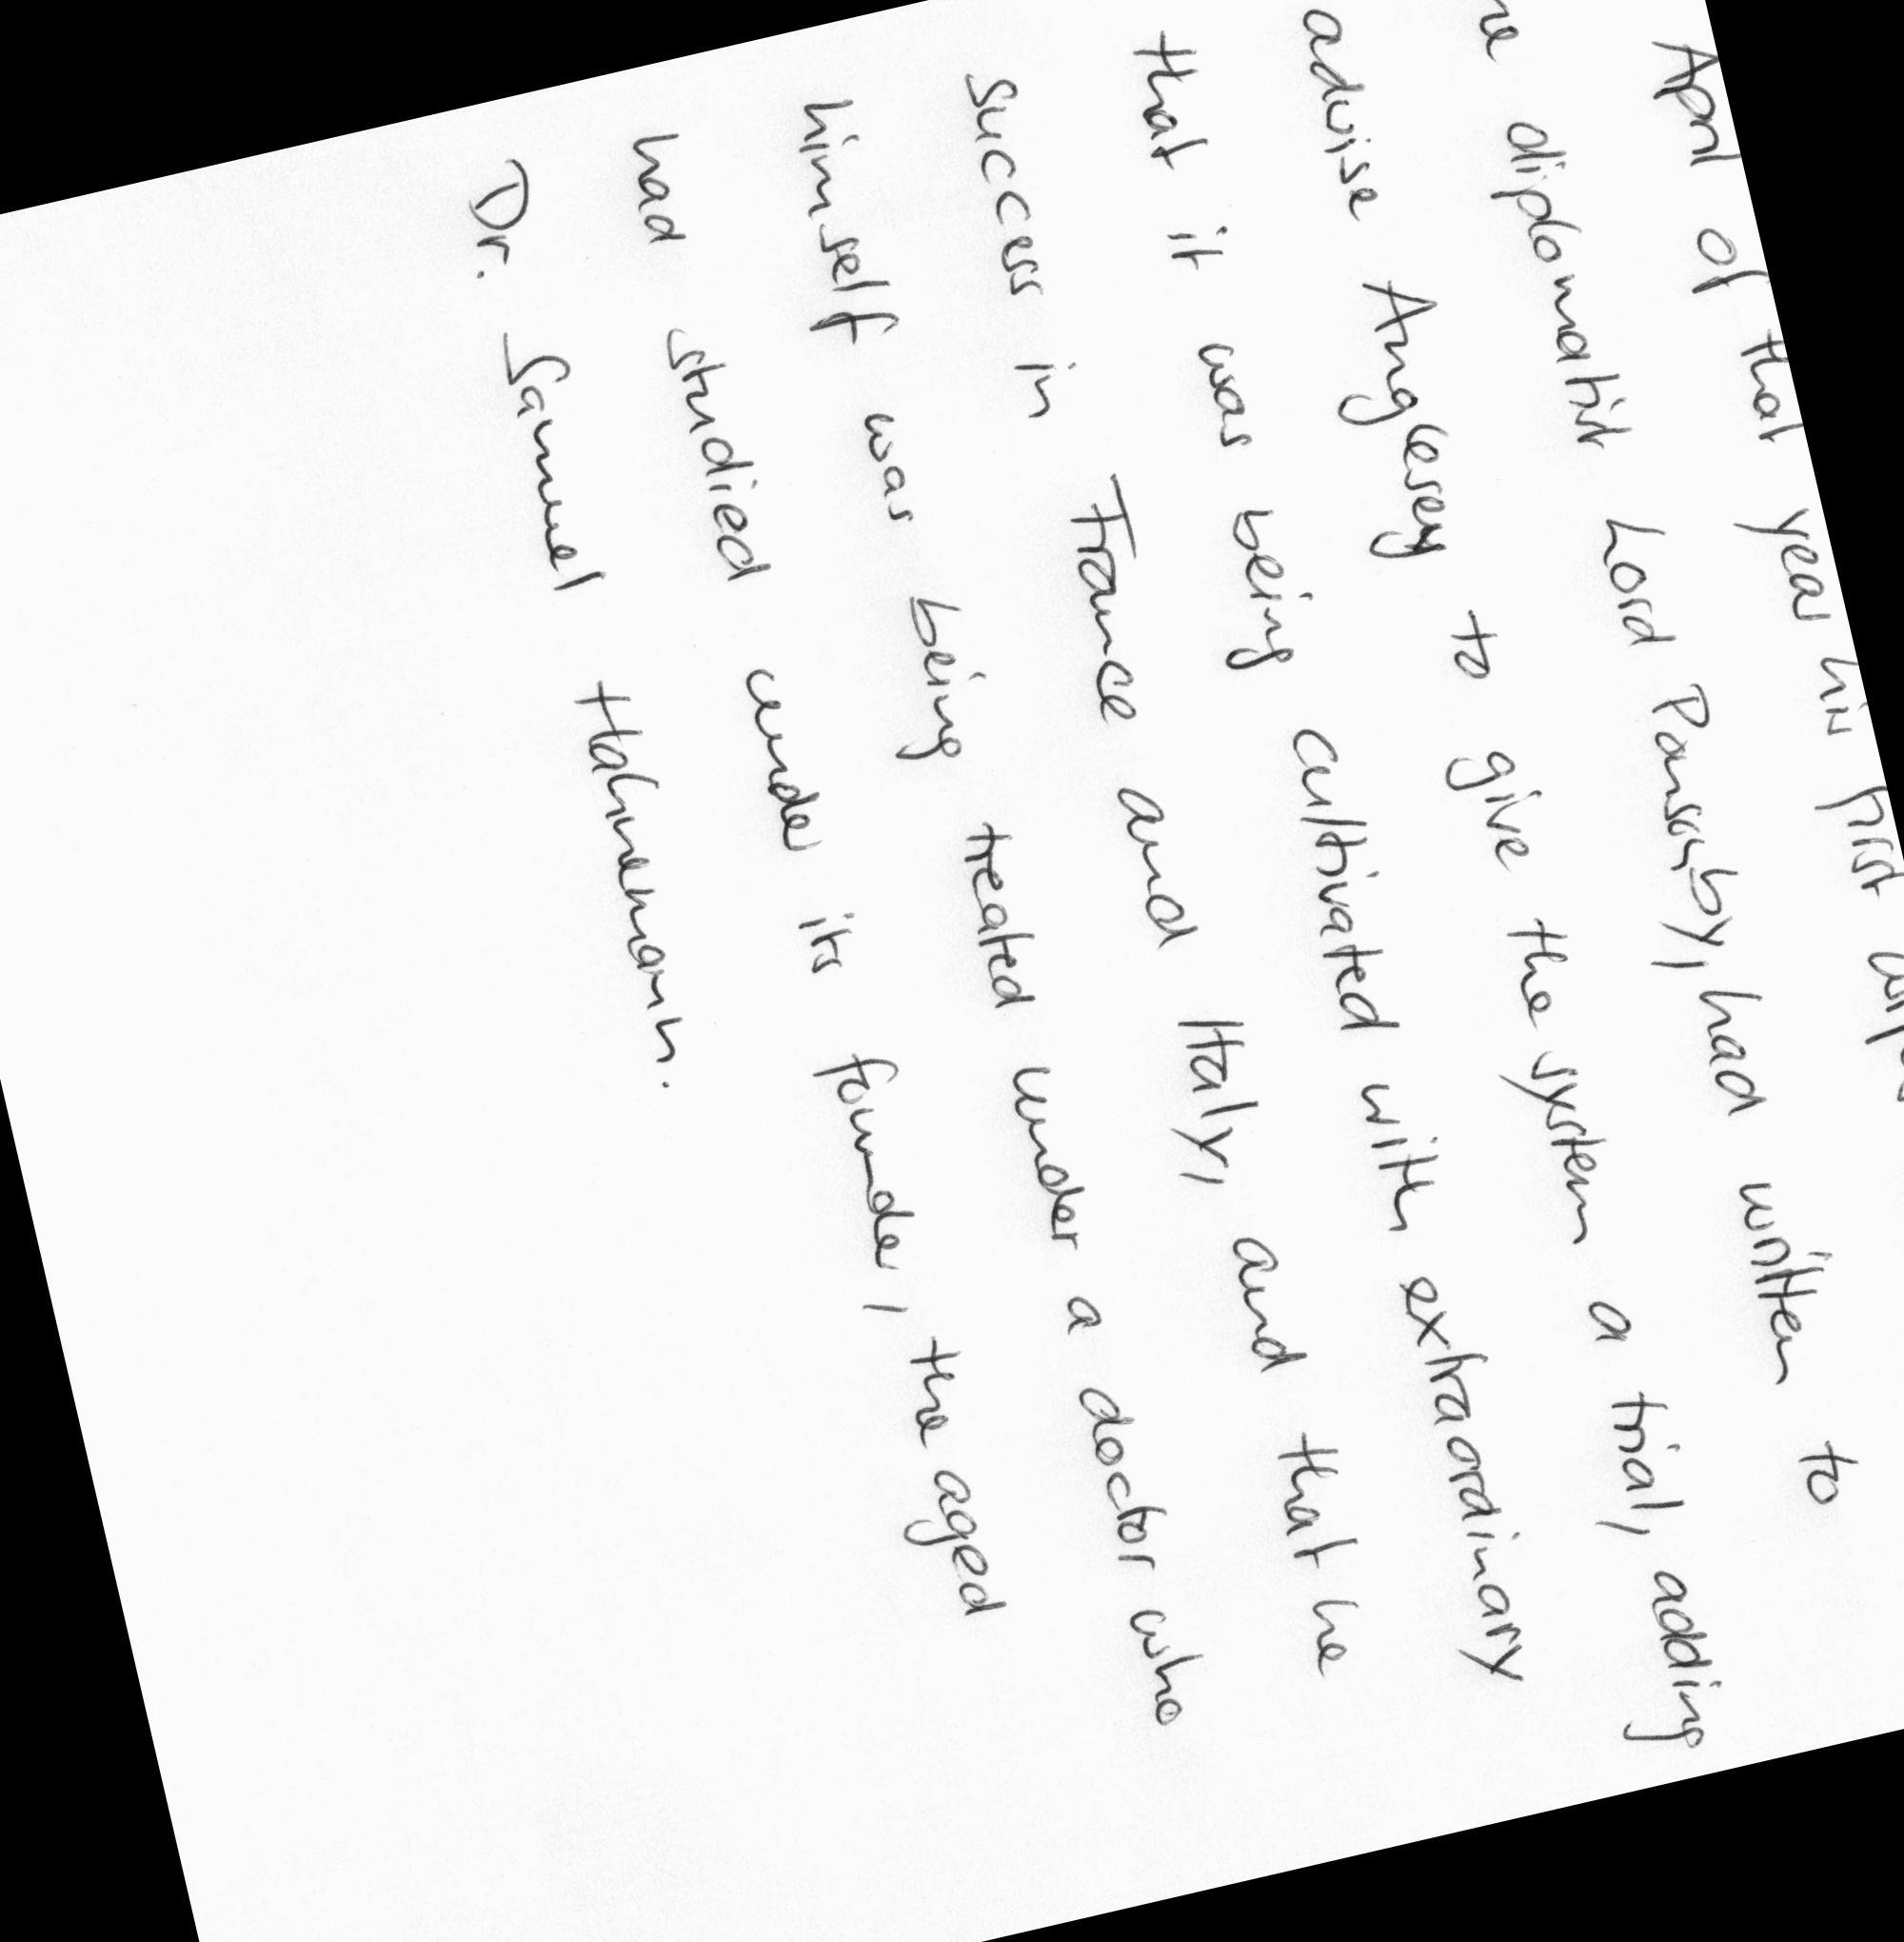 April of that year his first
diplomatist Lord Ponsonby, had written to
advise Anglesey to give the system a trial, adding
that it was being cultivated with extraordinary
success in France and Italy, and that he
himself was being treated under a doctor who
had studied under its founder, the aged
Dr. Samuel Hahnemann.